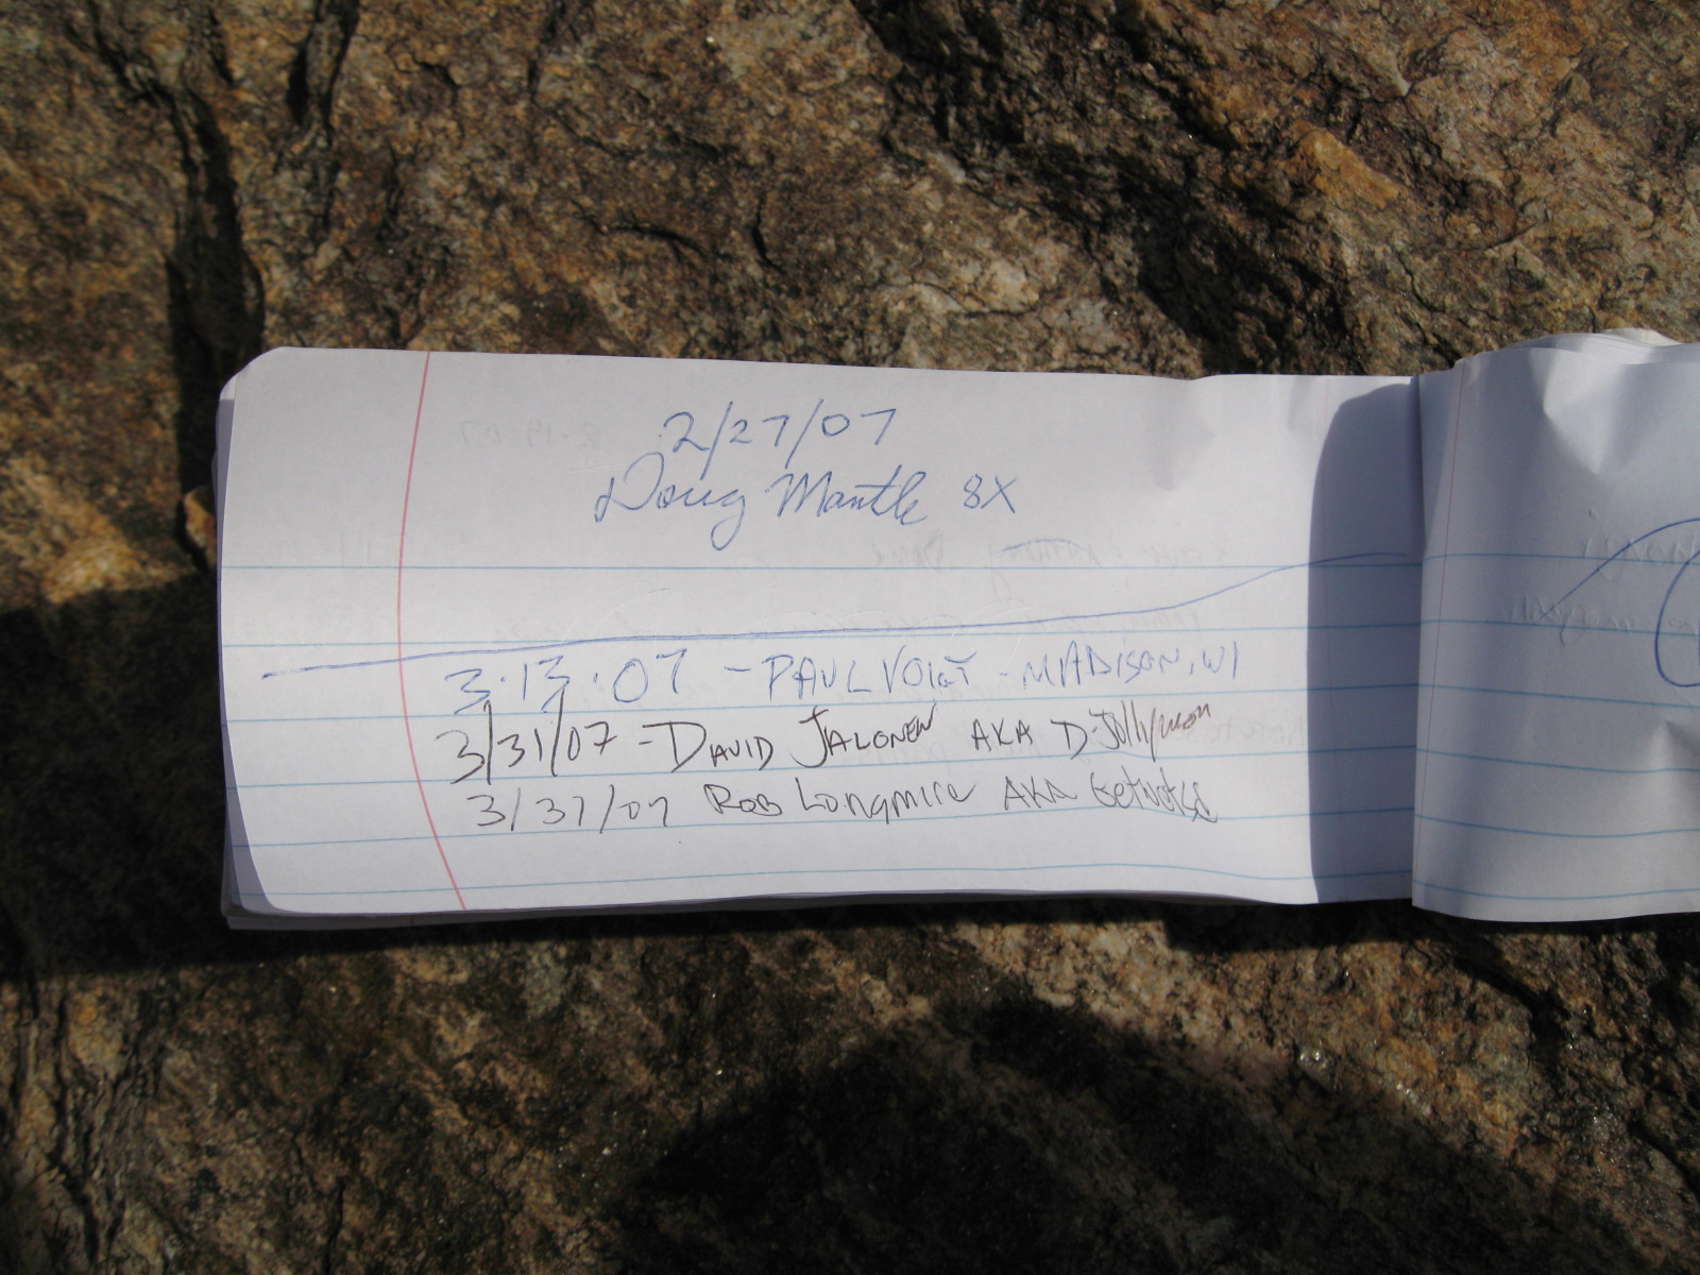 2/27/07
Doug Mantle 8X
3·13·07 - PAUL VOIGT - MADISON, WI
3/31/07 - DAVID JALONEN AKA D-Jollymon
3/31/07 ROB Longmire AKA